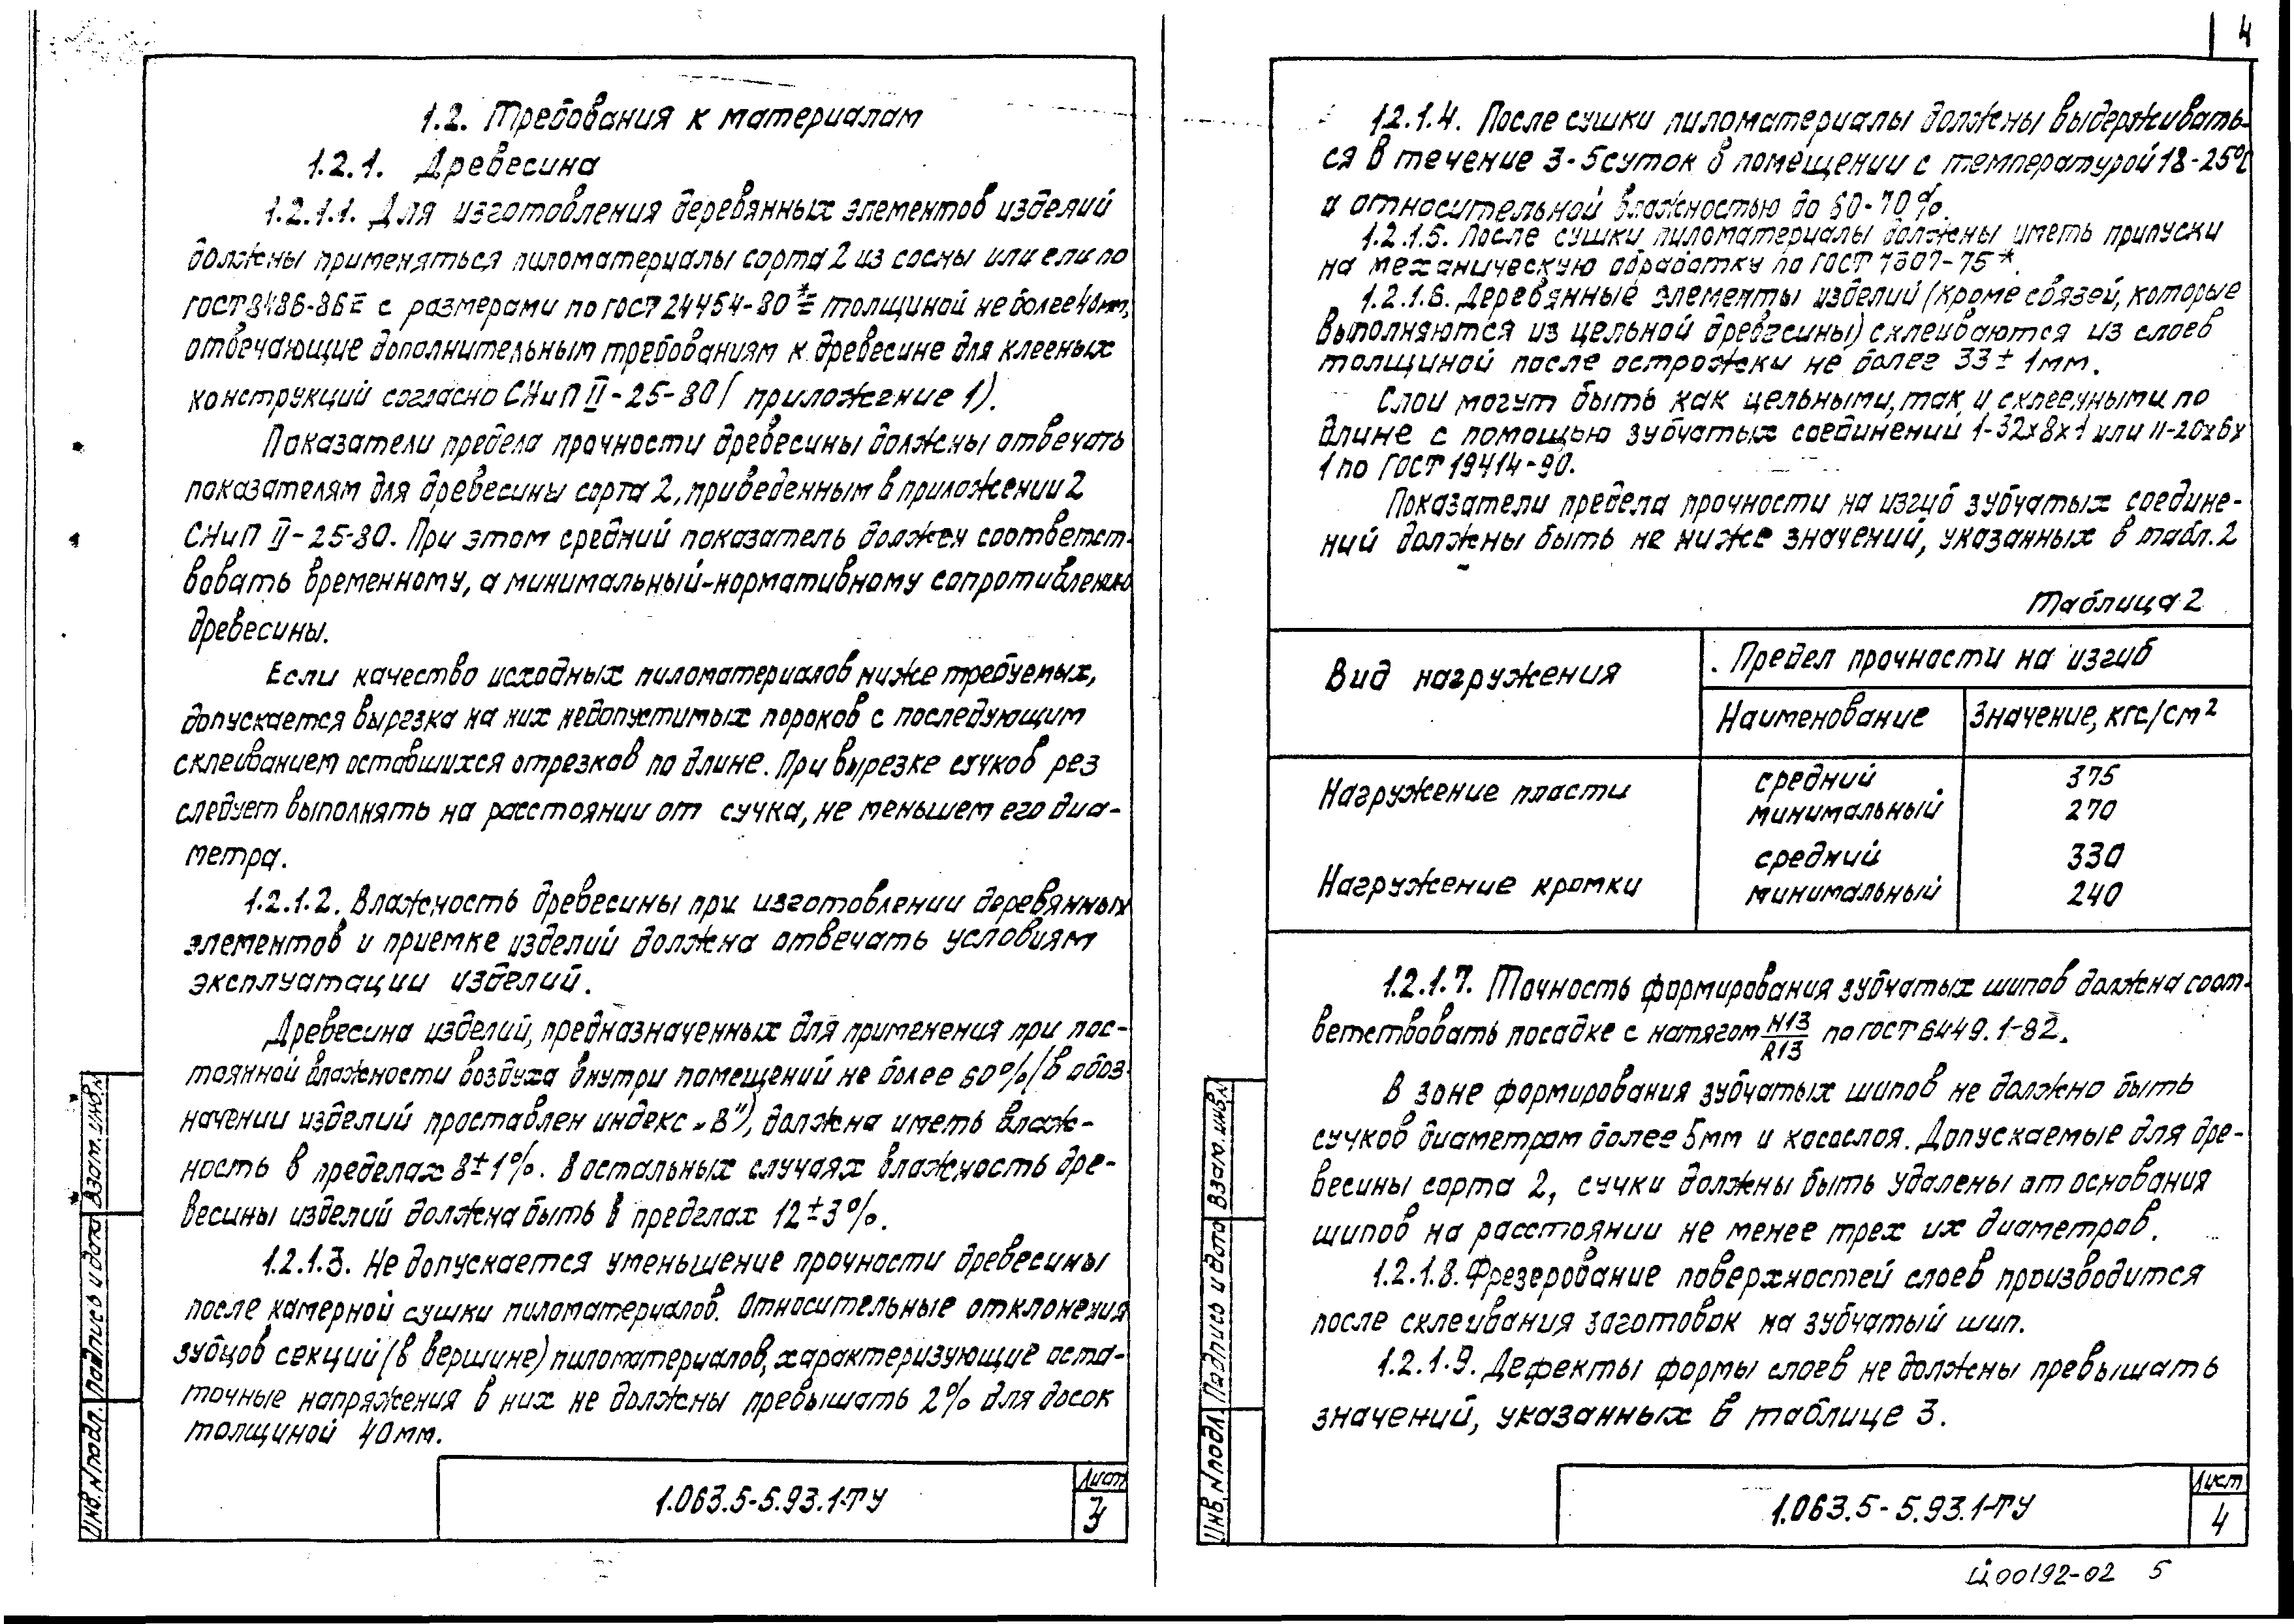 1.2. Требования к материалам
1.2.1. Древесина
1.2.1.1. Для изготовления деревянных элементов изделий
должны применяться пиломатериалы сорта 2 из сосны или ели по
ГОСТ 8486-86Е с размерами по ГОСТ 24454-80*Е толщиной не более 40мм,
отвечающие дополнительным требованиям к древесине для клееных
конструкций согласно СНиП II-25-80 (приложение 1).
Показатели предела прочности древесины должны отвечать
показателям для древесины сорта 2, приведенным в приложении 2
СНиП II-25-80. При этом средний показатель должен соответст-
вовать временному, а минимальный-нормативному сопротивлению
древесины.
Если качество исходных пиломатериалов ниже требуемых,
допускается вырезка на них недопустимых пороков с последующим
склеиванием оставшихся отрезков по длине. При вырезке сучков рез
следует выполнять на расстоянии от сучка, не меньшем его диа-
метра.
1.2.1.2. Влажность древесины при изготовлении деревянных
элементов и приемке изделий должна отвечать условиям
эксплуатации изделий.
Древесина изделий, предназначенных для применения при пос-
тоянной влажности воздуха внутри помещений не более 60% (в обоз-
начении изделий проставлен индекс „В"), должна иметь влаж-
ность в пределах 8±1%. В остальных случаях влажность дре-
весины изделий должна быть в пределах 12±3%.
1.2.1.3. Не допускается уменьшение прочности древесины
после камерной сушки пиломатериалов. Относительные отклонения
зубцов секций (в вершине) пиломатериалов, характеризующие оста-
точные напряжения в них не должны превышать 2% для досок
толщиной 40мм.
Взам. инв.№
Подпись и дата
Инв. № подл.
1.063.5-5.93.1-ТУ
Лист
3
4
1.2.1.4. После сушки пиломатериалы должны выдерживать-
ся в течение 3-5 суток в помещении с температурой 18-25°С
и относительной влажностью до 60-70%.
1.2.1.5. После сушки пиломатериалы должны иметь припуски
на механическую обработку по ГОСТ 7307-75*.
1.2.1.6. Деревянные элементы изделий (кроме связей, которые
выполняются из цельной древесины) склеиваются из слоев
толщиной после острожки не более 33±1мм.
Слои могут быть как цельными, так и склееными по
длине с помощью зубчатых соединений I-32х8х1 или II-20х6х
1 по ГОСТ 19414-90.
Показатели предела прочности на изгиб зубчатых соедине-
ний должны быть не ниже значений, указанных в табл. 2
Таблица 2
Вид нагружения
Предел прочности на изгиб
Наименование
Значение, кгс/см²
Нагружение пласти
средний 375
минимальный 270
Нагружение кромки
средний 330
минимальный 240
1.2.1.7. Точность формирования зубчатых шипов должна соот-
ветствовать посадке с натягом H13/R13 по ГОСТ 6449.1-82.
В зоне формирования зубчатых шипов не должно быть
сучков диаметром более 5мм и косослоя. Допускаемые для дре-
весины сорта 2, сучки должны быть удалены от основания
шипов на расстоянии не менее трех их диаметров.
1.2.1.8. Фрезерование поверхностей слоев производится
после склеивания заготовок на зубчатый шип.
1.2.1.9. Дефекты формы слоев не должны превышать
значений, указанных в таблице 3.
Взам. инв.№
Подпись и дата
Инв. № подл.
1.063.5-5.93.1-ТУ
Лист
4
Ц00192-02 5